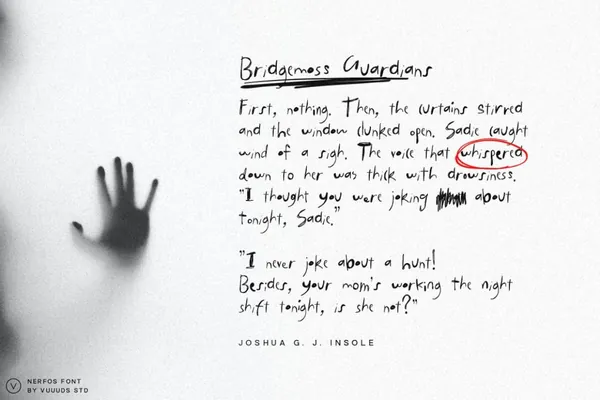 Bridgemoss Guardians
First, nothing. Then, the curtains stirred
and the window clunked open. Sadie caught
wind of a sigh. The voice that whispered
down to her was thick with drowsiness.
"I thought you were joking about
tonight, Sadie."
"I never joke about a hunt!
Besides, your mom's working the night
shift tonight, is she not?"
JOSHUA G. J. INSOLE
V
NERFOS FONT
BY VUUUDS STD